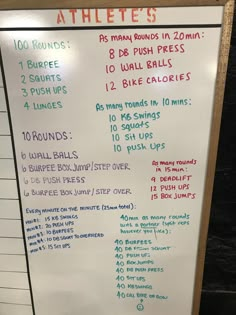 ATHLETE'S
100 ROUNDS:
1 BURPEE
2 SQUATS
3 PUSH UPS
4 LUNGES
10 ROUNDS:
6 WALL BALLS
6 BURPEE BOX JUMP/STEP OVER
6 DB PUSH PRESS
6 BURPEE BOX JUMP/STEP OVER
EVERY MINUTE ON THE MINUTE (25min total):
MIN #1: 15 KB SWINGS
MIN #3: 10 BURPEES
MIN #5: 15 SIT UPS
As many Rounds in 20min:
8 DB PUSH PRESS
10 WALL BALLS
12 BIKE CALORIES
As many rounds in 10 mins:
10 KB SWINGS
10 squats
10 SIT UPS
10 push UPS
As many rounds
in 15 min:
9 DEADLIFT
12 PUSH UPS
15 BOX JUMPS
40min as many rounds
w/ a partner (split reps
however you like):
40 BURPEES
40 DB SQUAT
40 PUSH UPS
40 BOX JUMPS
40 DB PUSH PRESS
40 SIT UPS
40 KB SWINGS
40 CAL BIKE OR ROW